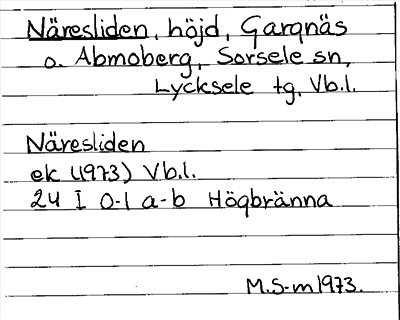 Näresliden, höjd, Gargnäs
o. Abmoberg, Sorsele sn,
Lycksele tg, Vb.l.
Näresliden
ek (1973) Vb.l.
24 I 0-1 a-b Högbränna
M.S-m 1973.